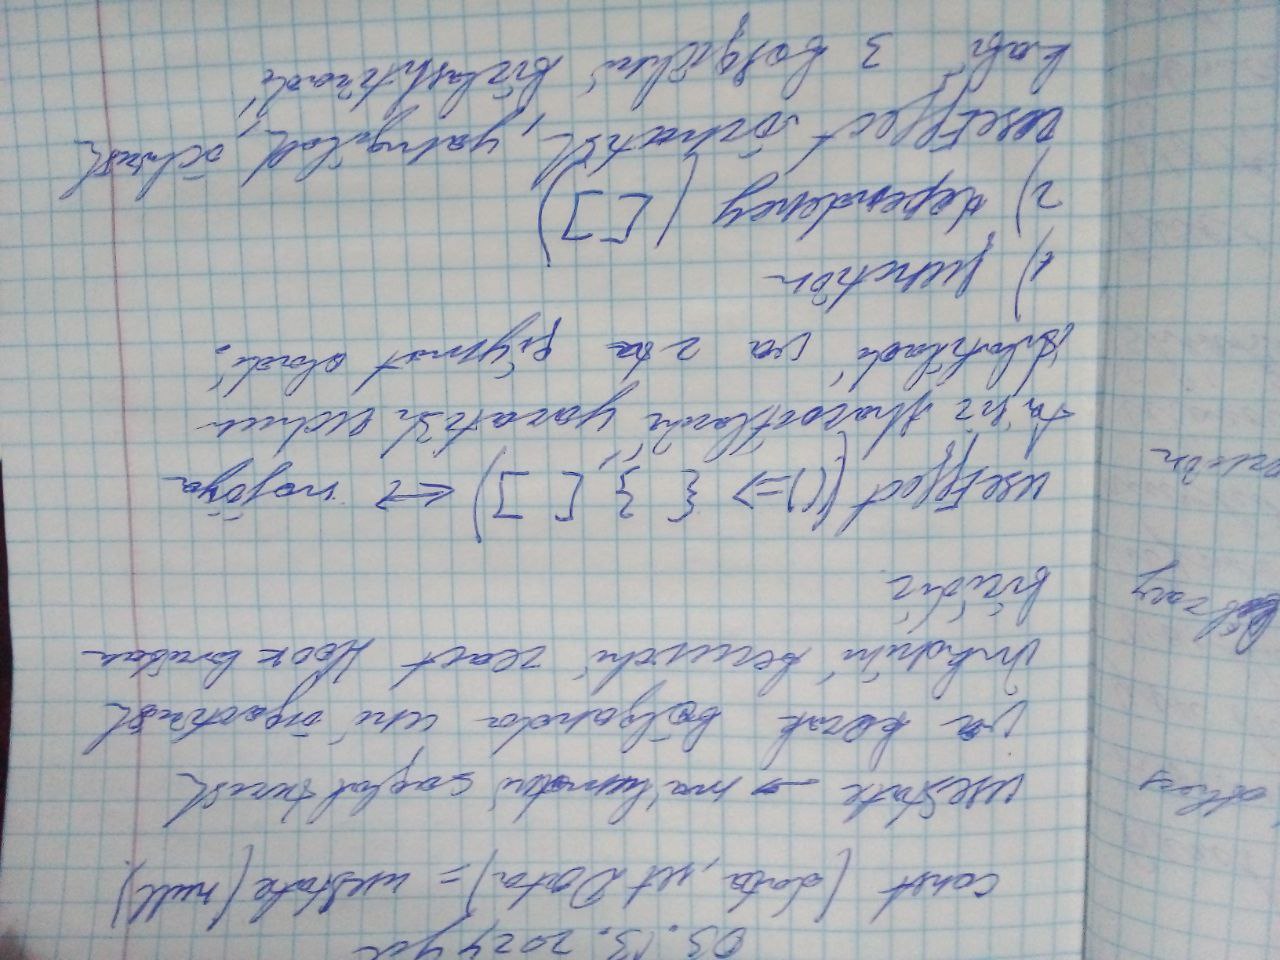 03.13.2024 yil
const (data, set Data) = usestate (null)
others
usestate → ma'lumotni saqlab turish
va kerak bo'lganda uni o'zgartirish
imkonini beruvchi react Hook laridan
library
biridir.
useEffect (() => { }, [ ]) <-> nojo'ya
ta'sir sharoitlarini yaratish uchun
ishlatiladi va 2 ta qiymat oladi.
1) function
2) dependency ([ ])
useEffect o'rnatish, yangilash, o'chirish
kabi 3 bosqichni birlashtiradi